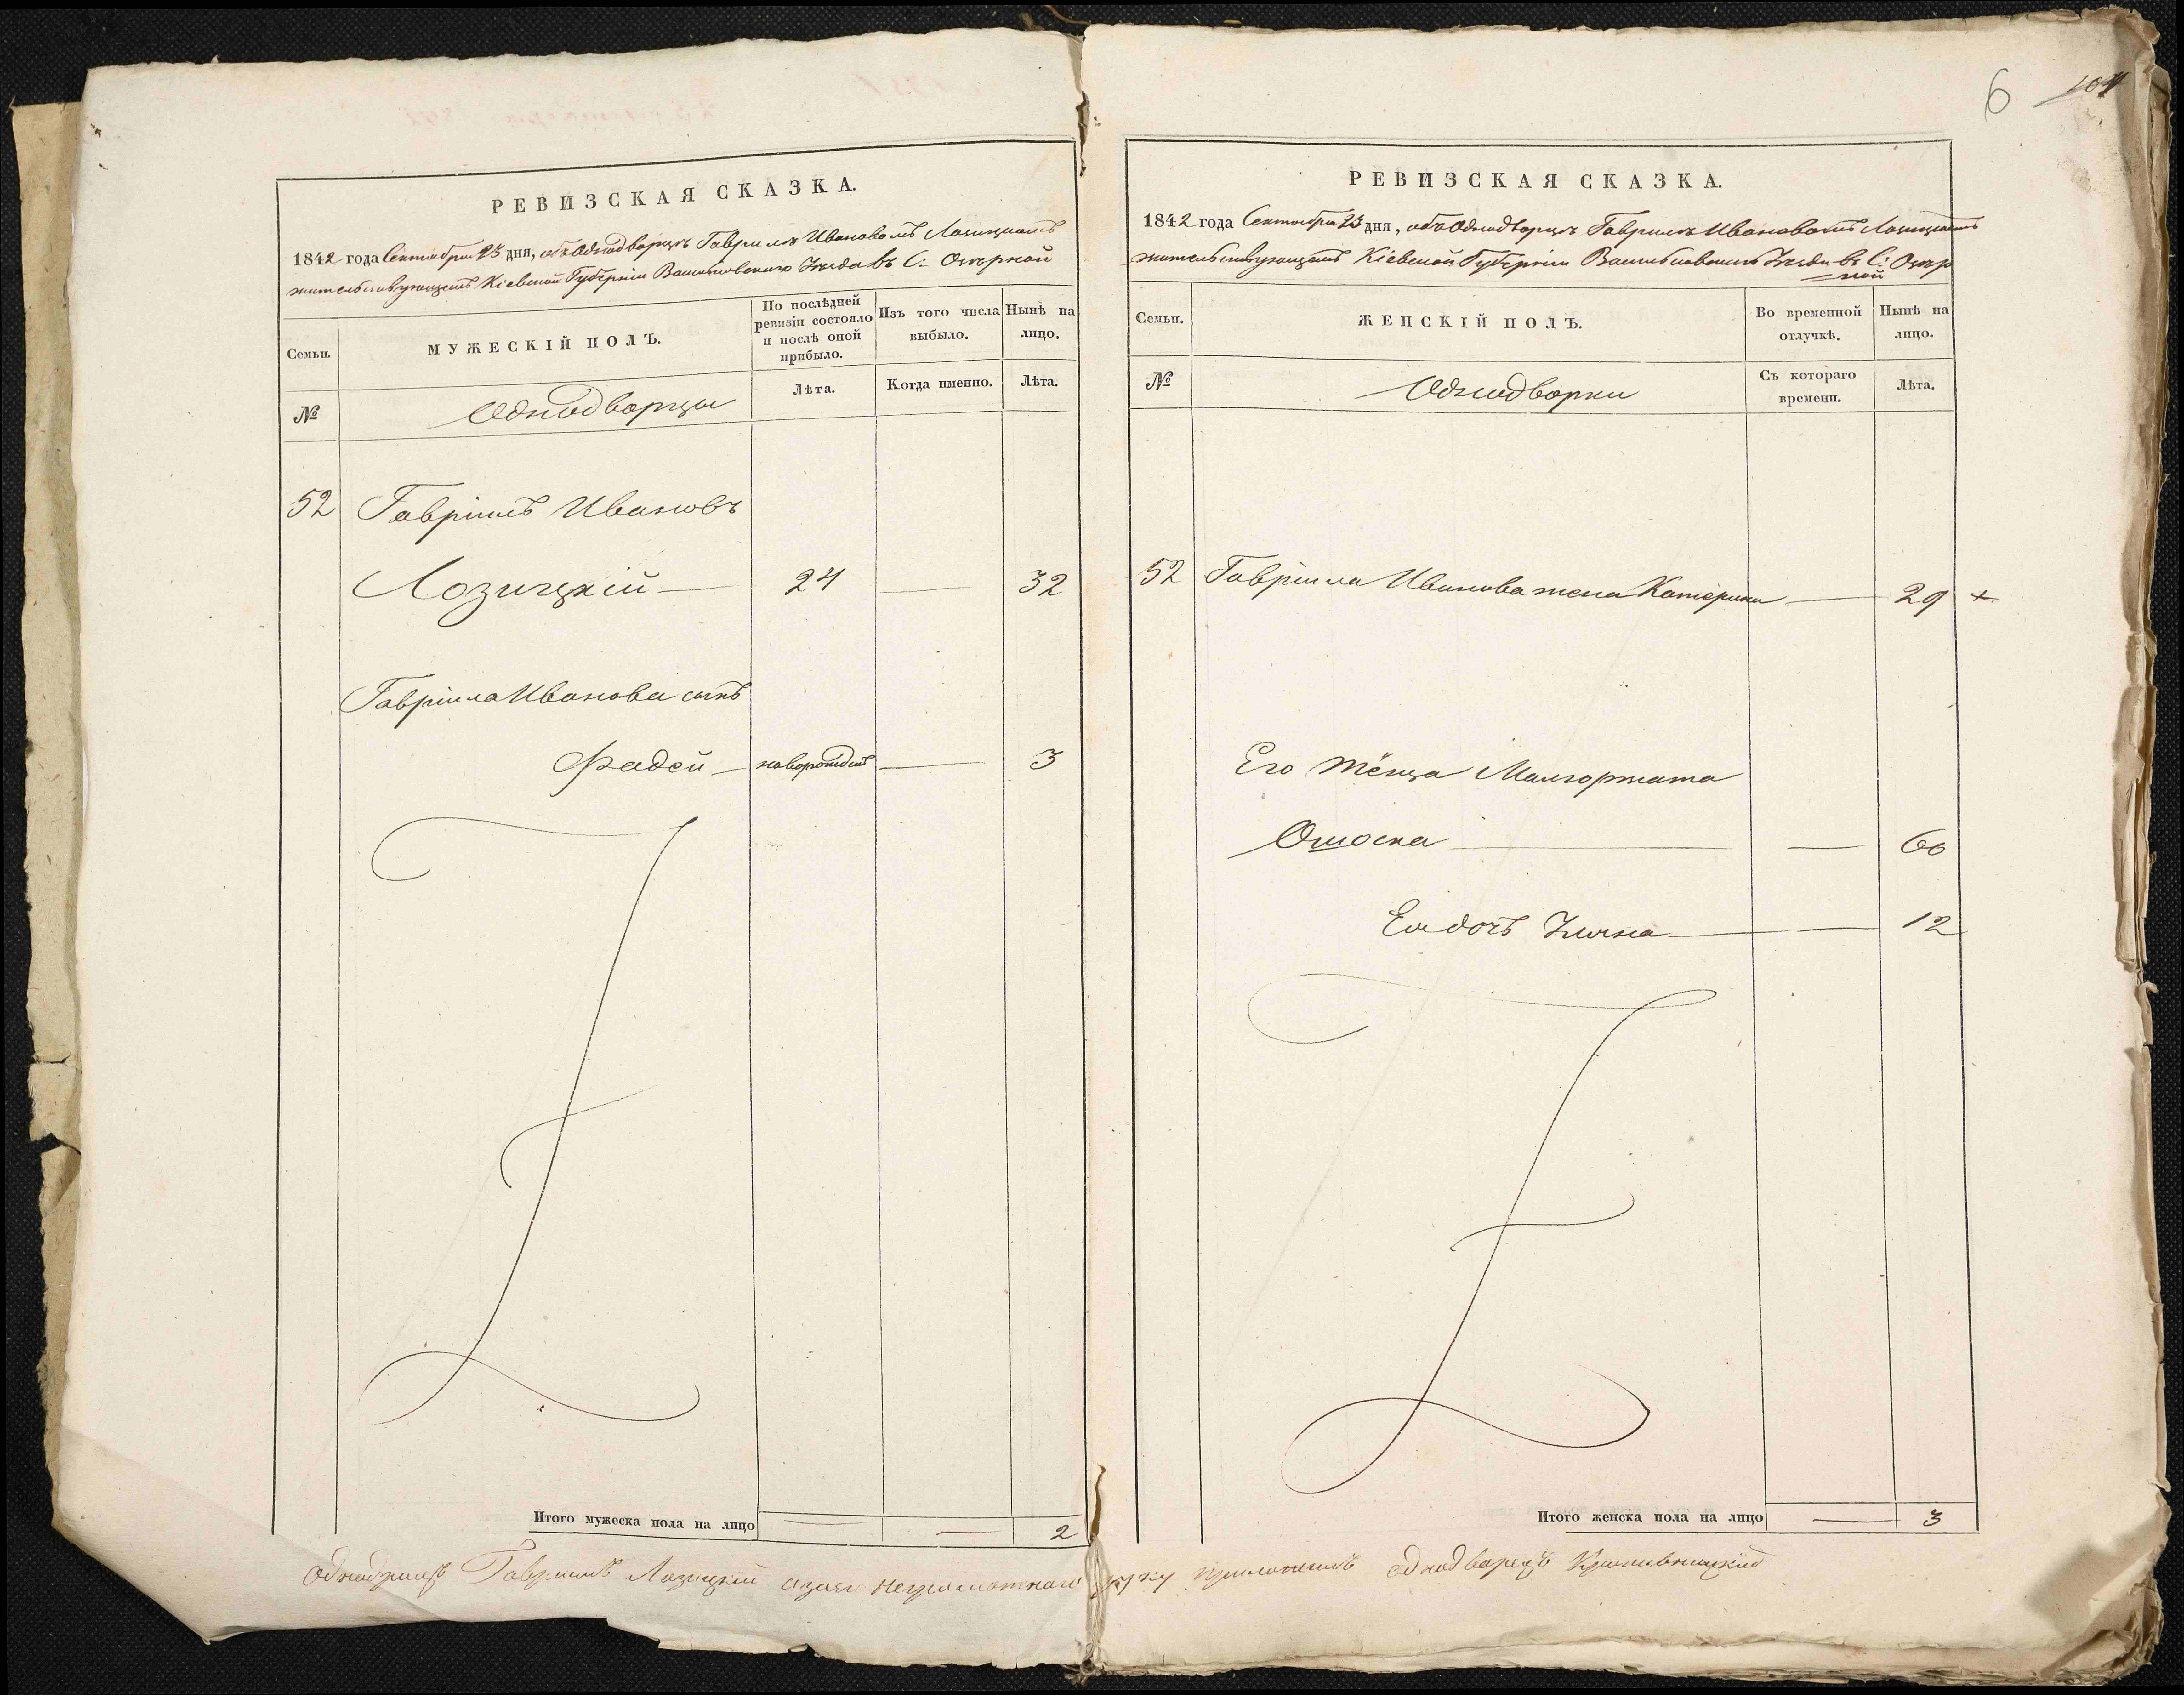 6 104
РЕВИЗСКАЯ СКАЗКА.
1842 года Сентября 23 дня, объ Однодворцѣ Гаврилѣ Ивановомъ Лозицкомъ
жительствующемъ Кіевской Губерніи Васильковскаго Уезда въ С: Озерной
Семьи.
МУЖЕСКІЙ ПОЛЪ.
По послѣдней ревизіи состояло и послѣ оной прибыло.
Изъ того числа выбыло.
Нынѣ на лицо.
№
Однодворцы
Лѣта.
Когда именно.
Лѣта.
52 Гавріилъ Ивановъ
Лозицкій — 24 — 32
Гавріила Иванова сынъ
Фадей — новорожден — 3
Итого мужеска пола на лицо — — 2
РЕВИЗСКАЯ СКАЗКА.
1842 года Сентября 23 дня, объ Однодворцѣ Гаврилѣ Ивановомъ Лозицкомъ
жительствующемъ Кіевской Губерніи Васильковскаго Уезда въ С: Озер
ной
Семьи.
ЖЕНСКІЙ ПОЛЪ.
Во временной отлучкѣ.
Нынѣ на лицо.
№
Однодворки
Съ котораго времени.
Лѣта.
52 Гавріила Иванова жена Катерина — 29 +
Его тёща Малгоржата
— — 60
Ея дочь — — 12
Итого женска пола на лицо — 3
однодворецъ Гавриилъ Лозицкий а за его неграмотнаго руку приложилъ однодворецъ